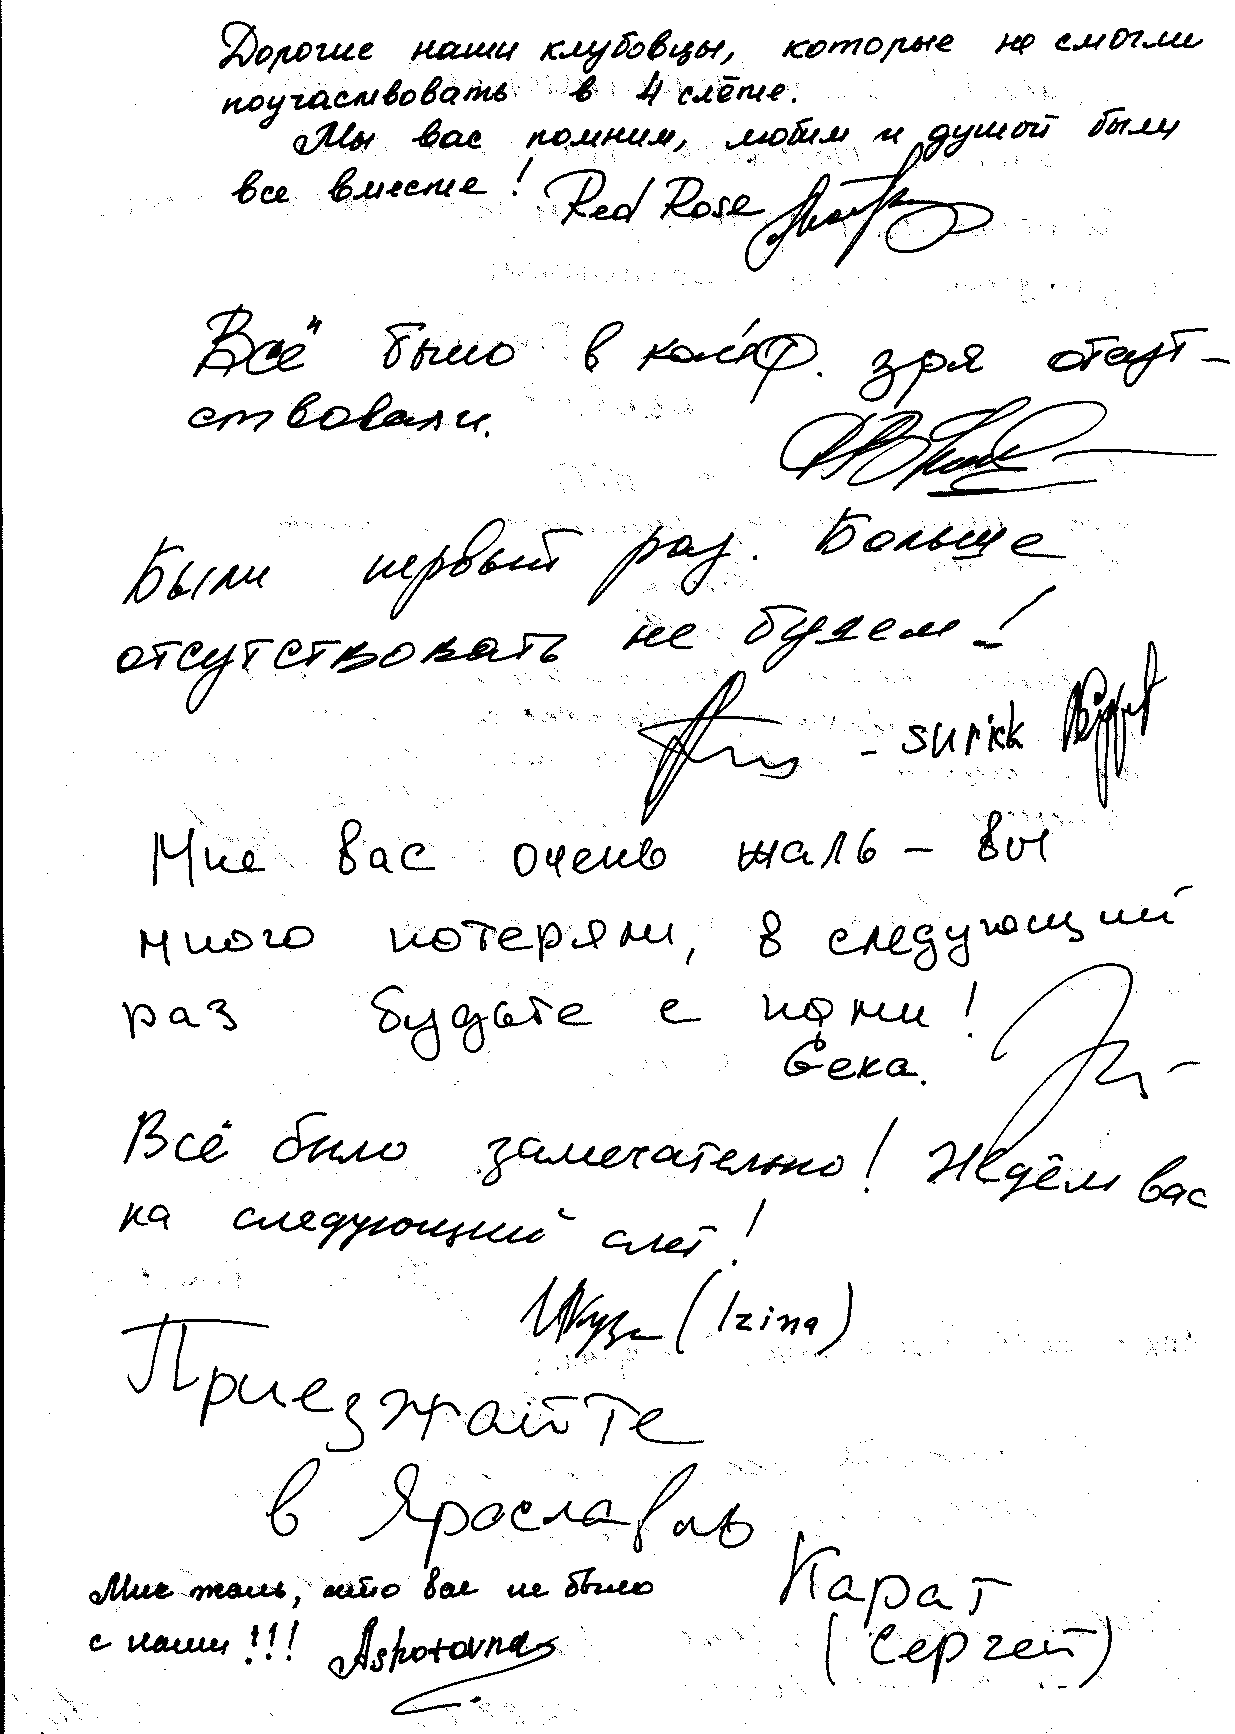 Дорогие наши клубовцы, которые не смогли
поучаствовать в 4 слёте.
Мы вас помним, любим и душой были
все вместе! Red Rose
Всё было в кайф. зря отсут-
ствовали.
Были первый раз. Больше
отсутствовать не будем!
- surikk
Мне вас очень жаль - вы
много потеряли, в следующий
раз будьте с нами!
Сека.
Всё было замечательно! Ждём вас
на следующий слет!
(Izina)
Приезжайте
в Ярославль
Карат
(Сергей)
Мне жаль, что вас не было
с нами!!! Ashotovna